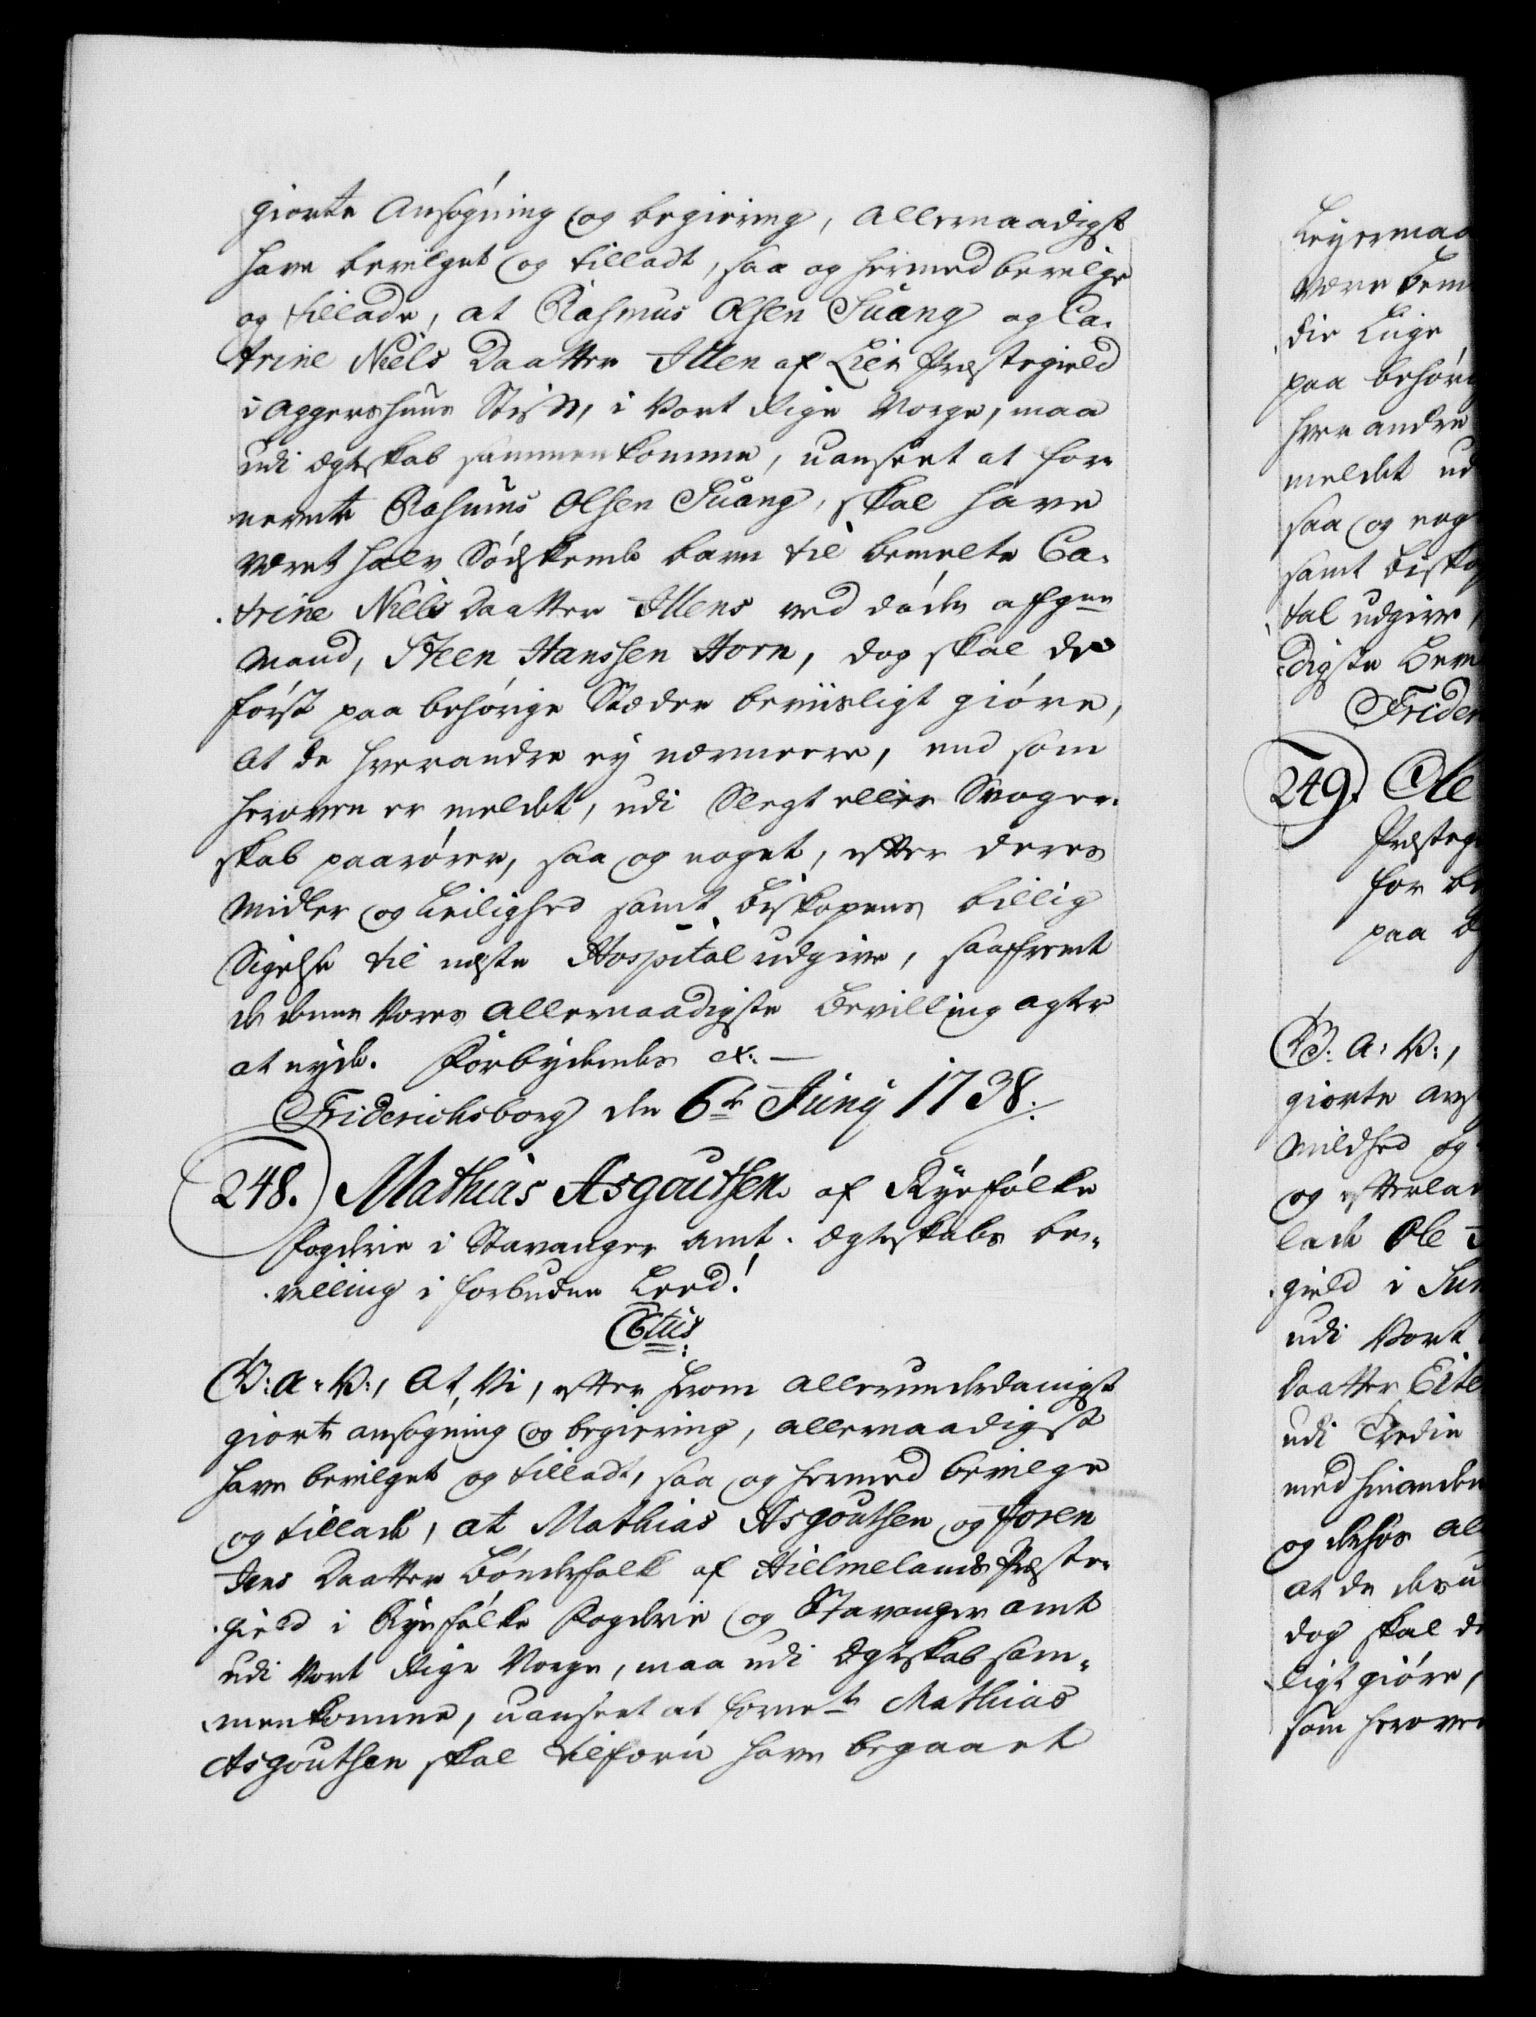 giorte Ansøgning og begiering, allernaadigst
have bevilget og tilladt, saa og hermed bevilge
og tillade, at Rasmus Olsen Suang og Ca-
trine Niels Daatter Illen af Lier Præstegield
i Aggershuus Stift, i Vort Rige Norge, maa
udi Ægteskab sammenkomme, uanseet at for-
nevnte Rasmus Olsen Suang, skal have
været halv Sødskende barn til bemelte Ca-
trine Niels Daatter Illens ved døde afgne
Mand, Steen Hanssen Horn, dog skal de
først paa behørige Stæder beviisligt giøre,
at de hverandre ey nærmere, end som
heroven er meldet, udi Slegt eller Svoger-
skab paarører, saa og noget, efter deres
Midler og Leilighed samt Biskopens billig
Sigelse til næste Hospital udgive, saafremt
de denne Vores allernaadigste Bevilling agter
at nyde. Forbydendes &c. —
Friderichsborg den 6te Junij 1738.
248. Mathias Asgoutsen af Ryefølke
Fogderie i Stavanger Amt. Ægteskabs be-
villing i forbuden Leed!
C6tus
G: A: V:, At Vi, efter herom allerunderdanigst
giorte ansøgning og begiering, allernaadigst
have bevilget og tilladt, saa og hermed bevilge
og tillade, at Mathias Asgoutsen og Joren
Jens Daatter Bøndefolk af Hielmelands Præste-
gield i Ryefølke Fogderie og Stavanger Amt
udi Vort Rige Norge, maa udi Ægteskab sam-
menkomme, uanseet at fornte Mathias
Asgoutsen skal tilforn have begaaet
Leyermaa
være bem
die Lige
paa behør
hver andre
meldet ud
saa og nog
samt Bisko
tal udgive,
digste Bev
Frider
249. Ole
Præsteg
for be
paa
G: A: V:,
giorte ans
Mildhed og
og efterla
lade Ole
gield i Sun
udi Vort
Daatter Eite
udi Tredie
med hinanden
og behøv al
at de des u
dog skal de
ligt giøre,
som heroven